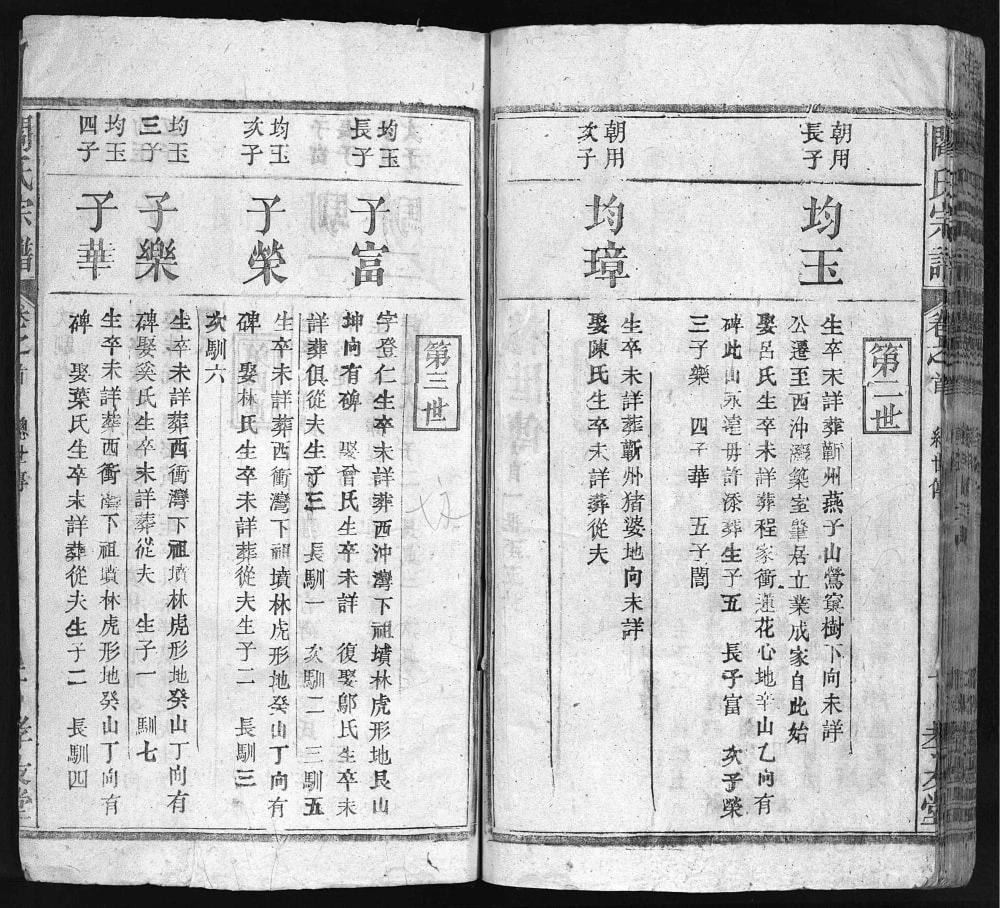 氏宗譜
卷之首
第二世
朝用
長子
均玉
生卒未詳葬蘄州燕子山鶯窠樹下向未詳
公遷至西沖灣築室肇居立業成家自此始
娶呂氏生卒未詳葬程家衝蓮花心地辛山乙向有
碑此山永遠毋許添葬生子五 長子富 次子榮
三子樂 四子華 五子閣
朝用
次子
均璋
生卒未詳葬蘄州猪婆地向未詳
娶陳氏生卒未詳葬從夫
第三世
均玉
長子
子富
字登仁生卒未詳葬西沖灣下祖墳林虎形地艮山
坤向有碑 娶曾氏生卒未詳 復娶鄔氏生卒未
詳葬俱從夫生子三 長馴一 次馴二 三馴五
均玉
次子
子榮
生卒未詳葬西衝灣下祖墳林虎形地癸山丁向有
碑 娶林氏生卒未詳葬從夫生子二 長馴三
次馴六
均玉
三子
子樂
生卒未詳葬西衝灣下祖墳林虎形地癸山丁向有
碑娶奚氏生卒未詳葬從夫 生子一 馴七
均玉
四子
子華
生卒未詳葬西衝灣下祖墳林虎形地癸山丁向有
碑 娶葉氏生卒未詳葬從夫生子二 長馴四
氏宗譜
卷之首
孝友堂